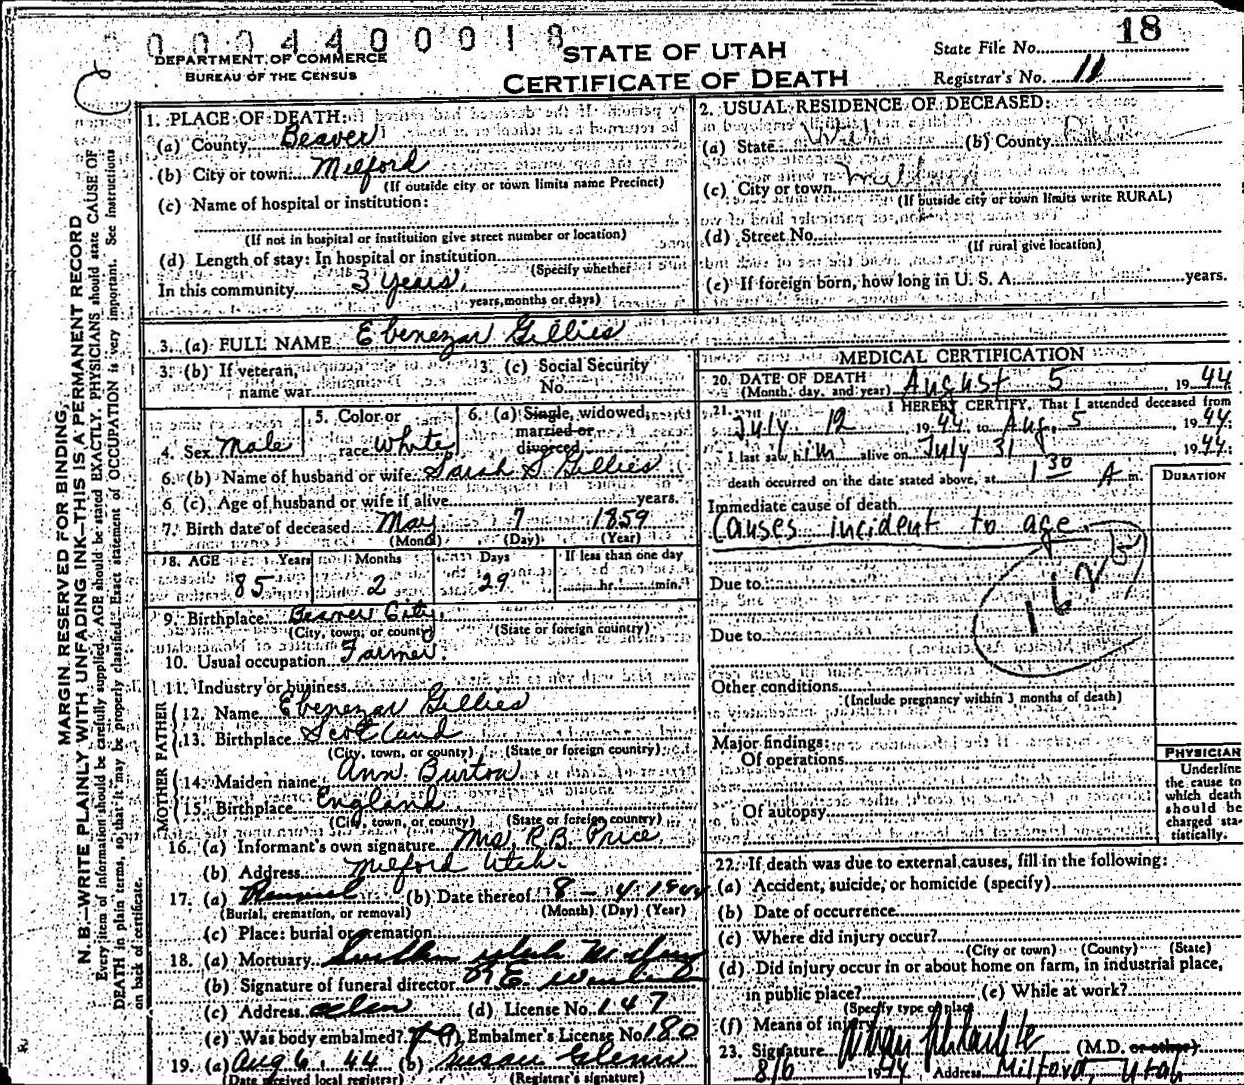 0004400018
18
DEPARTMENT OF COMMERCE
BUREAU OF THE CENSUS
STATE OF UTAH
CERTIFICATE OF DEATH
State File No.
Registrar's No. 11
MARGIN RESERVED FOR BINDING,
N. B.—WRITE PLAINLY WITH UNFADING INK—THIS IS A PERMANENT RECORD
Every item of information should be carefully supplied. AGE should be stated EXACTLY. PHYSICIANS should state CAUSE OF
DEATH in plain terms, so that it may be properly classified. Exact statement of OCCUPATION is very important. See instructions
on back of certificate.
1. PLACE OF DEATH:
(a) County Beaver
(b) City or town: Milford
(If outside city or town limits name Precinct)
(c) Name of hospital or institution:
(If not in hospital or institution give street number or location)
(d) Length of stay: In hospital or institution
(Specify whether
In this community 3 years.
years, months or days)
2. USUAL RESIDENCE OF DECEASED:
(a) State (b) County
(c) City or town
(If outside city or town limits write RURAL)
(d) Street No.
(If rural give location)
(e) If foreign born, how long in U. S. A. years.
3. (a) FULL NAME Ebenezar Gillies
3. (b) If veteran,
name war
3. (c) Social Security
No.
4. Sex Male
5. Color or
race White
6. (a) Single, widowed,
married or
divorced
6. (b) Name of husband or wife Sarah S Gillies
6 (c). Age of husband or wife if alive years.
7. Birth date of deceased May 7 1859
(Month) (Day) (Year)
8. AGE Years Months Days If less than one day
85 2 29 hr. min.
9. Birthplace Beaver City.
(City, town, or county) (State or foreign country)
10. Usual occupation Farmer.
11. Industry or business
FATHER
12. Name Ebenezar Gillies
13. Birthplace Scotland
(City, town, or county) (State or foreign country)
MOTHER
14. Maiden name Ann Burton
15. Birthplace England
(City, town, or county) (State or foreign country)
16. (a) Informant's own signature Mrs. R.B. Price.
(b) Address Milford Utah.
17. (a) Removal (b) Date thereof 8 - 4 1944
(Burial, cremation, or removal) (Month) (Day) (Year)
(c) Place: burial or cremation
18. (a) Mortuary Southern Utah
(b) Signature of funeral director
(c) Address (d) License No. 147
(e) Was body embalmed? Embalmer's License No. 180
19. (a) Aug 6, 44 (b) Susan Glenn
(Date received local registrar) (Registrar's signature)
MEDICAL CERTIFICATION
20. DATE OF DEATH
(Month, day, and year) August 5, 1944
21. I HEREBY CERTIFY, That I attended deceased from
July 12, 1944, to Aug. 5, 1944.
I last saw him alive on July 31, 1944.
death occurred on the date stated above, at 1 30 A m.
DURATION
Immediate cause of death
Causes incident to age
162B
Due to
Due to
Other conditions
(Include pregnancy within 3 months of death)
Major findings:
Of operations
Of autopsy
PHYSICIAN
Underline
the cause to
which death
should be
charged sta-
tistically.
22. If death was due to external causes, fill in the following:
(a) Accident, suicide, or homicide (specify)
(b) Date of occurrence
(c) Where did injury occur?
(City or town) (County) (State)
(d) Did injury occur in or about home on farm, in industrial place,
in public place? (e) While at work?
(Specify type of place)
(f) Means of injury
23. Signature (M.D. or other)
8/6 1944 Address Milford, Utah